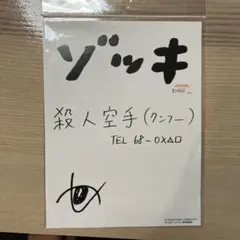 ゾッキ
殺人空手(クンフー)
TEL 68-0X△□